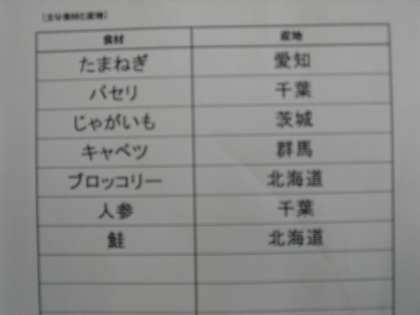 (主な食材と産地)
食材 産地
たまねぎ 愛知
パセリ 千葉
じゃがいも 茨城
キャベツ 群馬
ブロッコリー 北海道
人参 千葉
鮭 北海道